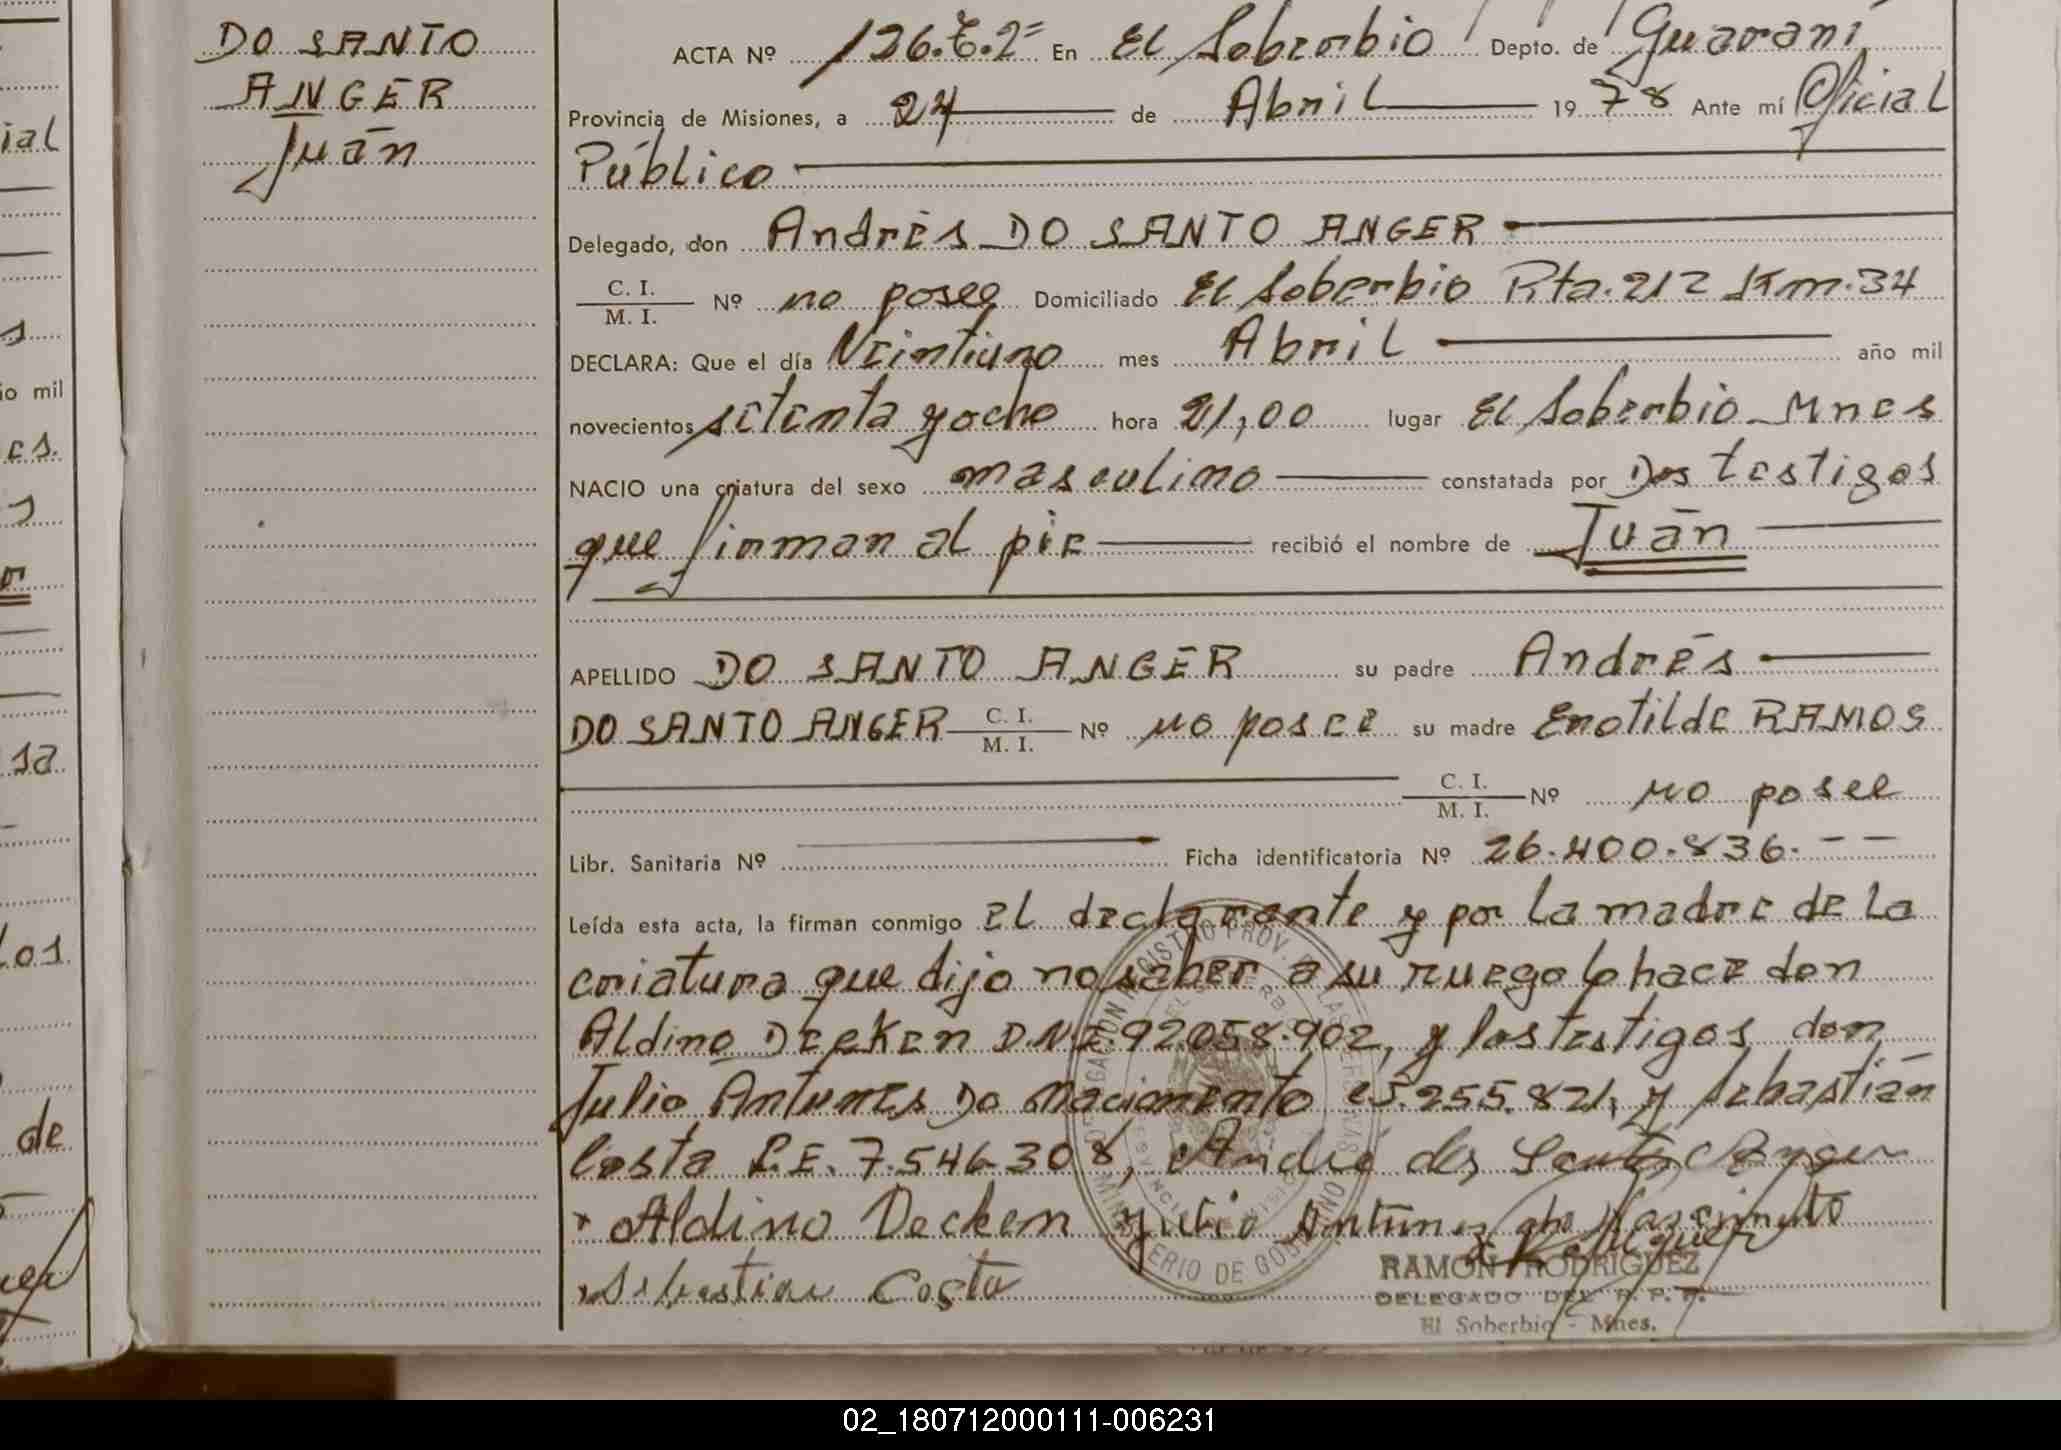 DO SANTO
ANGER
Juān
ACTA Nº 126.T.2º En El Soberbio Depto. de Guaraní
Provincia de Misiones, a 24 de Abril 1978 Ante mí Oficial
Público
Delegado, don Andrés DO SANTO ANGER
C. I.
M. I. Nº no posee Domiciliado El Soberbio Rta.212 Km.34
DECLARA: Que el día Veintiuno mes Abril año mil
novecientos setenta y ocho hora 21,00 lugar El Soberbio Mnes
NACIO una criatura del sexo masculino constatada por Dos testigos
que firman al pie recibió el nombre de Juān
APELLIDO DO SANTO ANGER su padre Andrés
DO SANTO ANGER C. I. M. I. Nº no posee su madre Enotilde RAMOS
C. I.
M. I. Nº no posee
Libr. Sanitaria Nº Ficha identificatoria Nº 26.400.836.--
Leída esta acta, la firman conmigo el declarante y por la madre de la
criatura que dijo no saber a su ruego lo hace don
Aldino Decken D.N.I.92.058.902, y los testigos don
Julio Antunes Do Nacimento 25.255.821, y Sebastián
Costa L.E. 7.546.308, André dos Santos Anger
Aldino Decken Julio Antunez do Nascimento
Sebastian Costa
RAMON RODRIGUEZ
DELEGADO DEL R. P. P.
El Soberbio - Mnes.
ial
s
io mil
es.
or
sa
los
de
02_180712000111-006231